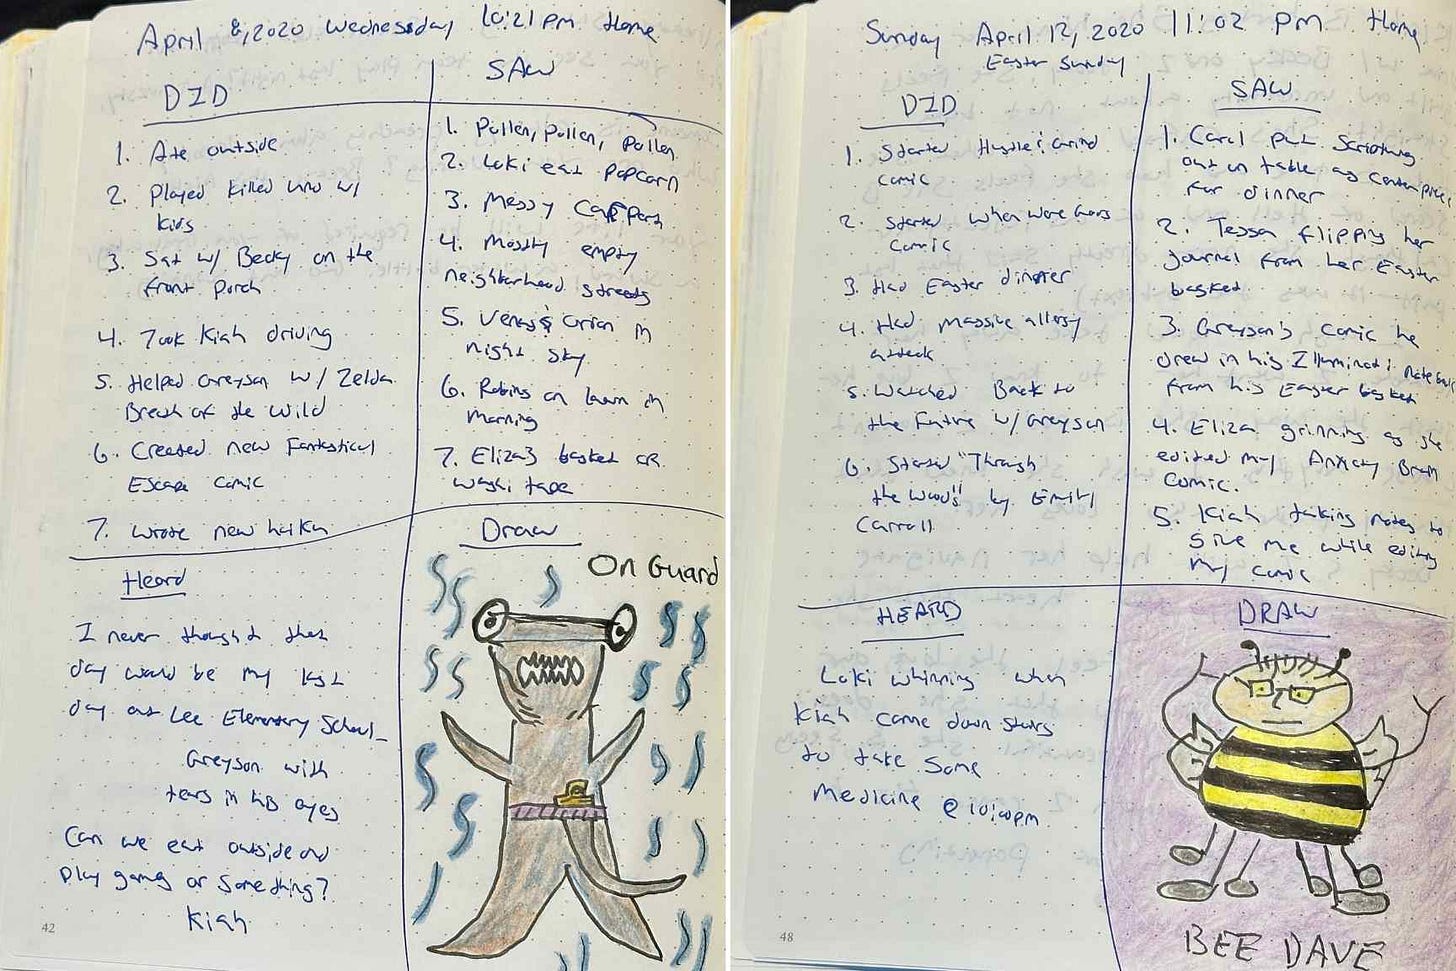 April 8, 2020 Wednesday 10:21 pm Home
DID
1. Ate outside
2. Played Killed Uno w/
kids
3. Sat w/ Becky on the
front porch
4. Took Kiah driving
5. Helped Greyson w/ Zelda
Breath of the Wild
6. Created new Fantastical
Escape comic
7. Wrote new haiku
SAW
1. Pollen, pollen, pollen
2. Loki eat popcorn
3. Messy
4. Mostly empty
neighborhood streets
5. Venus & Orion in
night sky
6. Robins on lawn in
morning
7. Eliza's basket of
washi tape
Heard
I never thought that
day would be my last
day at Lee Elementary School_
Greyson with
tears in his eyes
Can we eat outside and
play games or something?
Kiah
Draw
On Guard
42
Sunday April 12, 2020 11:02 PM Home
Easter Sunday
DID
1. Started Hustle & Grind
comic
2. Started When Were
Comic
3. Had Easter dinner
4. Had massive allergy
attack
5. Watched Back to
the Future w/ Greyson
6. Started "Through
the Woods" by Emily
Carroll
SAW
1. Carol put
out on table as centerpiece
for dinner
2. Tessa flipping her
journal from her Easter
basket
3. Greyson's comic he
drew in his Illuminati notebook
from his Easter basket
4. Eliza grinning as she
edited my Anxiety Brain
Comic.
5. Kiah taking notes to
give me while editing
my comic
HEARD
Loki whinning when
Kiah came down stairs
to take some
medicine @ 10:00pm
DRAW
BEE DAVE
48